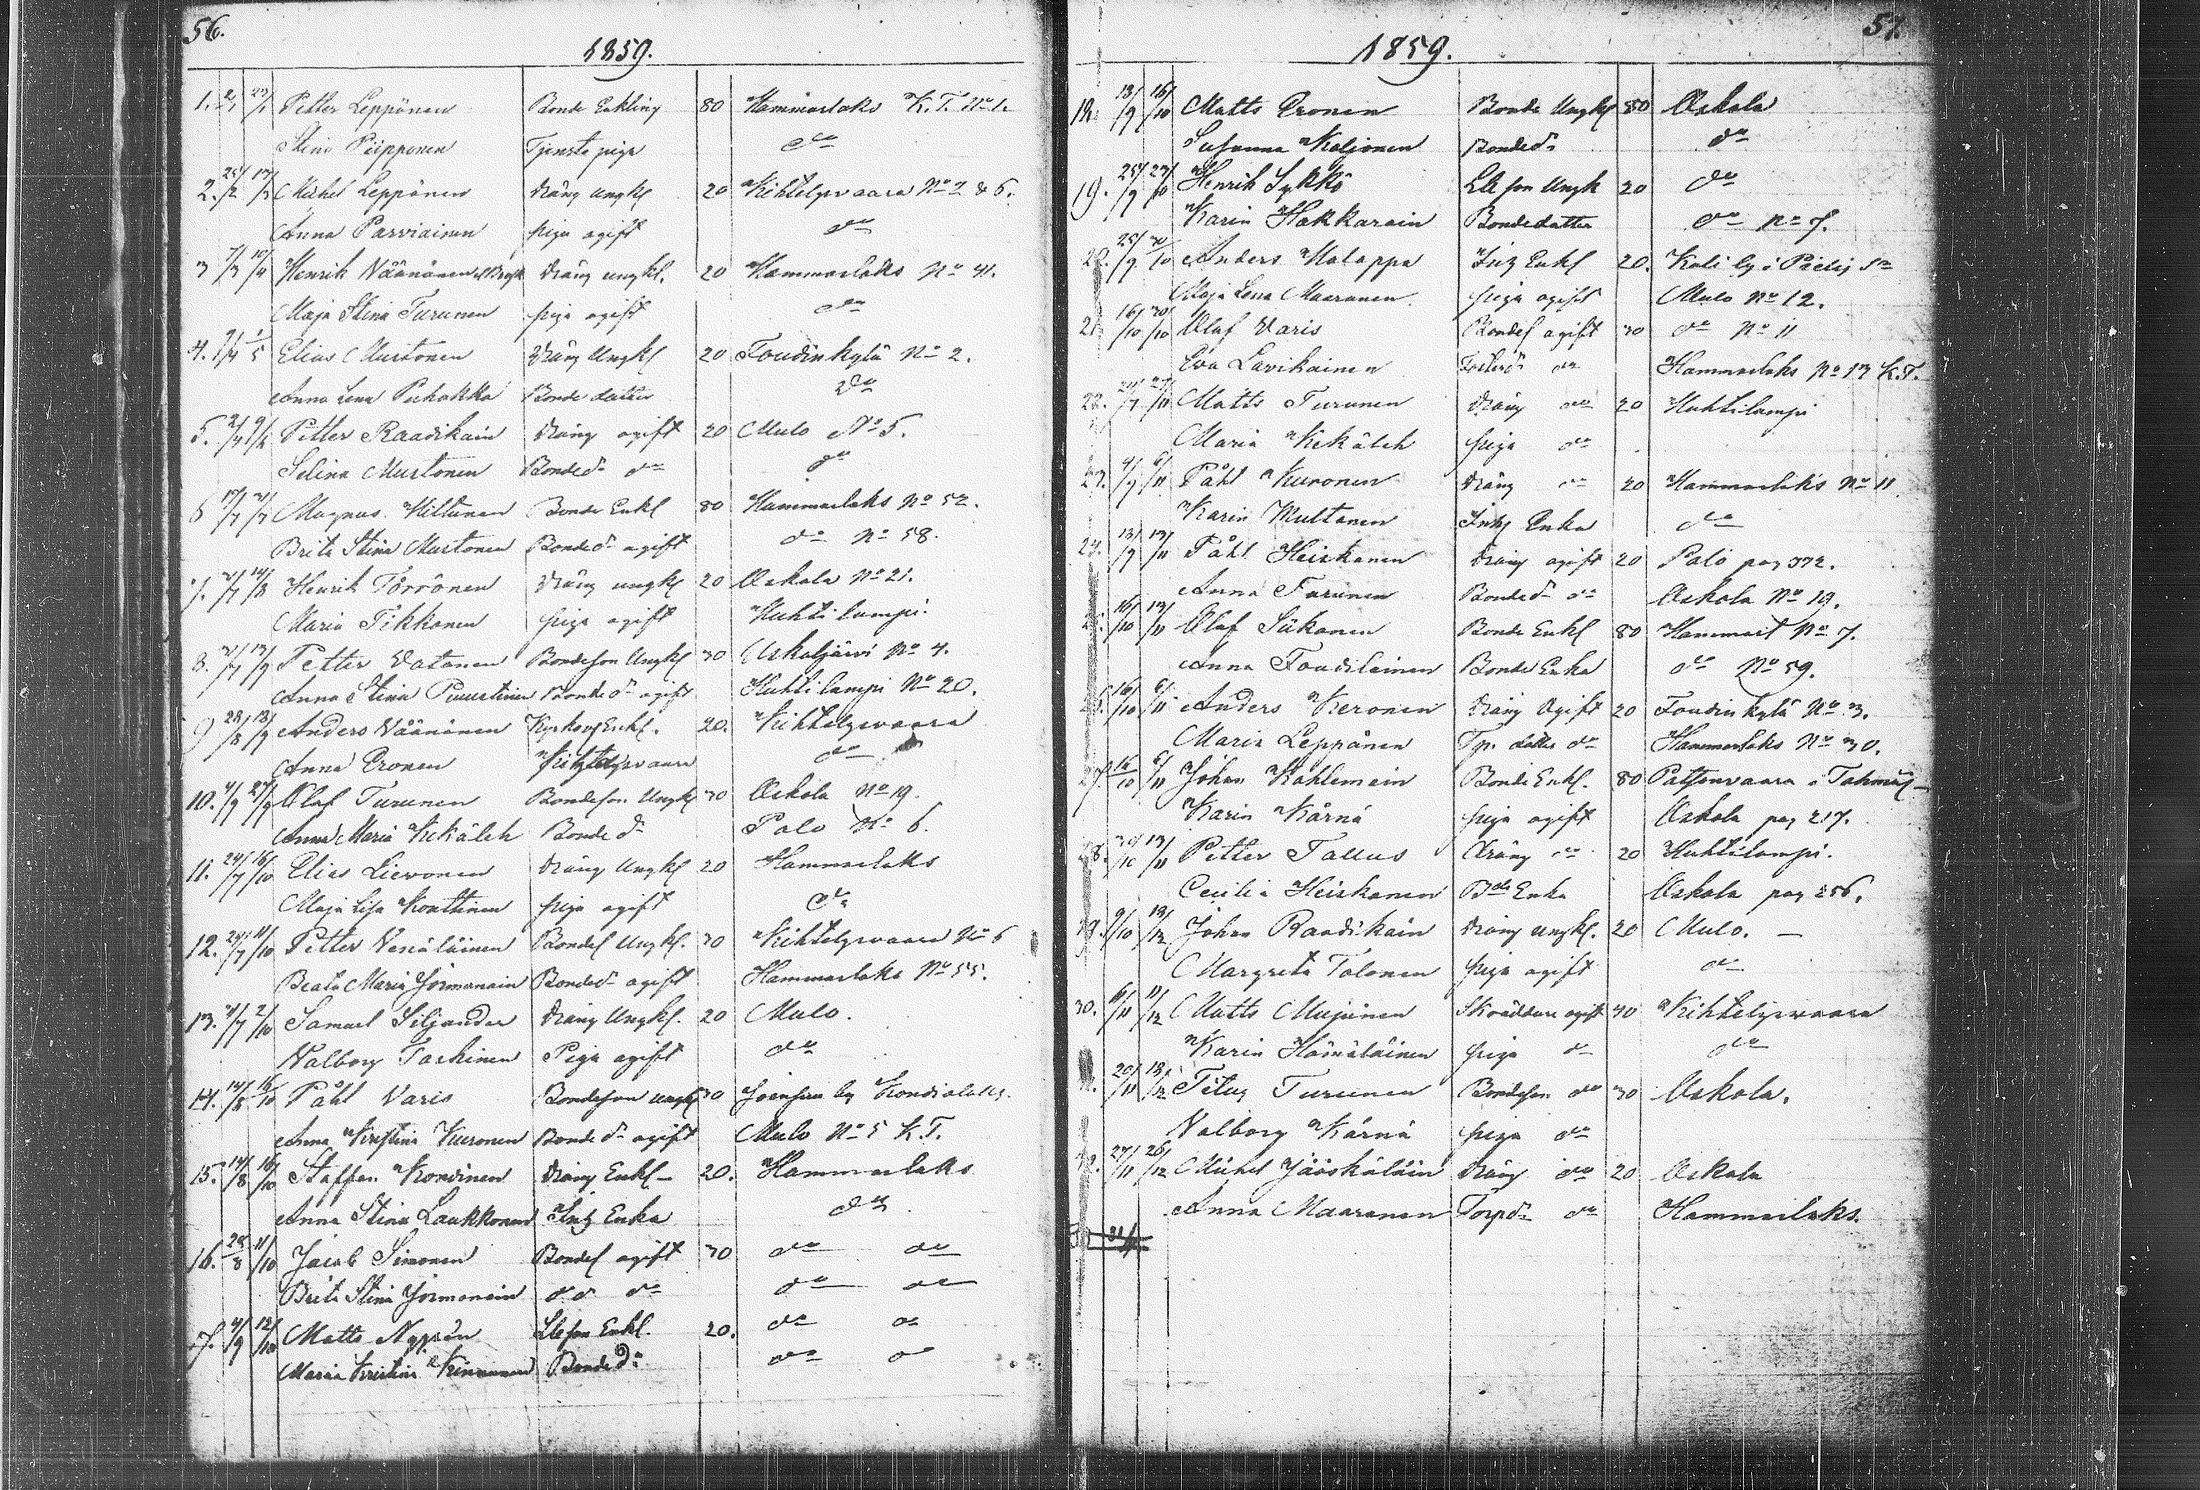 56.
1859.
1. 2/1 23/1 Petter Leppönen Bonde Enkling 80 Hammarlaks K. T. No 1.
Stina Piipponen Tjenste piga do
2. 25/2 13/3 Michel Leppönen Dräng ungkl 20 Kihtelysvaara No 2 & 6.
Anna Parviainen piga ogift do
3 7/3 10/4 Henrik Väänönen Dräng ungkl. 20 Hammarlaks No 41.
Maja Stina Turunen piga ogift do
4. 9/4 1/5 Elias Mustonen Dräng Ungkl 20 Foudinkylä No 2.
Anna Lena Puhakka Bonde datter do
5. Petter Raadikain Dräng ogift 20 Mulo No 5.
Selina Mustonen Bonded. do do
6 Magnus Hiltunen Bonde Enkl 80 Hammarlaks No 52.
Brita Stina Mustonen Bonded. ogift do No 58.
7. 14/8 Henrik Törrönen Dräng ungkl 20 Oskola No 21.
Maria Tikkanen piga ogift Huhtilampi.
8. 13/9 Petter Vatanen Bondeson Ungkl 30 Uskaljärvi No 4.
Anna Stina Puustinen Bonde d. ogift Huhtilampi No 20.
9 28/8 18/9 Anders Väänönen Enkl. 20. Kihtelysvaara
Anna Eronen Kihtelysvaara do
10. 4/9 27/9 Olaf Turunen Bondeson Ungkl 30 Oskola No 19.
Anna Maria Kekäleh Bonde d. Palo No 6.
11. 24/7 16/10 Elias Lievonen Dräng Ungkl 20 Hammarlaks
Maja Lisa Konttinen piga ogift do
12. 24/7 11/10 Petter Venäläinen Bondes Ungkl. 30 Kihtelysvaara No 6
Beata Maria Jormanain Bonded. ogift Hammarlaks No 55.
13. 31/7 2/10 Samuel Siljander Dräng Ungkl. 20 Mulo.
Valborg Tarkinen Piga ogift do
14. 14/8 16/10 Påhl Varis Bondeson ungkl 30 Joensuu by Kondiolaks.
Anna Kristina Kuronen Bonde d. ogift Mulo No 5 K. T.
15. 14/8 16/10 Staffan Kondinen Dräng Enkl 20. Hammarlaks
Anna Stina Laukkanen Inh Enka do
16. 28/8 11/10 Jacob Simonen Bondes ogift 30 do do
Brita Stina Jormanain do do do do
17. 4/9 12/10 Matts Nygrén Enkl. 20. do do
Maria Kristina Kinnunen Bonde d. do do
57.
1859.
18. 18/9 16/10 Matts Eronen Bonde Ungkl 80 Oskola
Susanna Kaljonen Bonded. do
19. 25/9 23/10 Henrik Sykkö Ungk 20 do
Karin Hakkarain Bondedatter do No 7.
20. 25/9 30/10 Anders Malappa Inh Enkl 20. Koli by i Pielis
Maja Lena Maaranen piga ogift Mulo No 12.
21 16/10 30/10 Olaf Varis Bondes ogift 30 do No 11
Eva Lavikainen do Hammarlaks No 13 K. T.
22. Matts Turunen Dräng do 20 Huhtilampi
Maria Kekäleh piga do
23. 4/9 6/11 Påhl Kuronen Dräng do 20 Hammarlaks No 11
Karin Multanen Inh Enka do
24. 13/9 13/11 Påhl Heiskanen Dräng ogift 20 Palo pag 372.
Anna Turunen Bonded. do Oskola No 19.
25. 16/10 13/11 Olaf Sükanen Bonde Enkl 80 Hammarl No 7.
Anna Foudilainen Bonde Enka do No 59.
26. 16/10 6/11 Anders Keronen Dräng Ogift 20 Foudin kylä No 3.
Maria Leppänen Tp. datter do Hammarlaks No 30.
27. 16/10 6/11 Johan Kahlemain Bonde Enkl. 80 Patsonvaara i Tohmaj
Karin Kärnä piga ogift Oskola pag 217.
28. 30/10 13/11 Petter Tallus Dräng do 20 Huhtilampi.
Cecilia Heiskanen Bde Enka Oskola pag 256.
29. 9/10 18/12 Johan Raadikain Dräng ungkl. 20 Mulo.
Margreta Tolonen piga ogift do
30. 6/11 11/12 Matts Mujunen Skräddare ogift 40 Kihtelysvaara
Karin Hämäläinen piga do do
31. 20/11 18/12 Titus Turunen Bondeson do 30 Oskola.
Valborg Kärnä piga do
32. 27/11 26/12 Michel Jääskäläin Dräng do 20 Oskola
Anna Maaranen Torpd. do Hammarlaks.